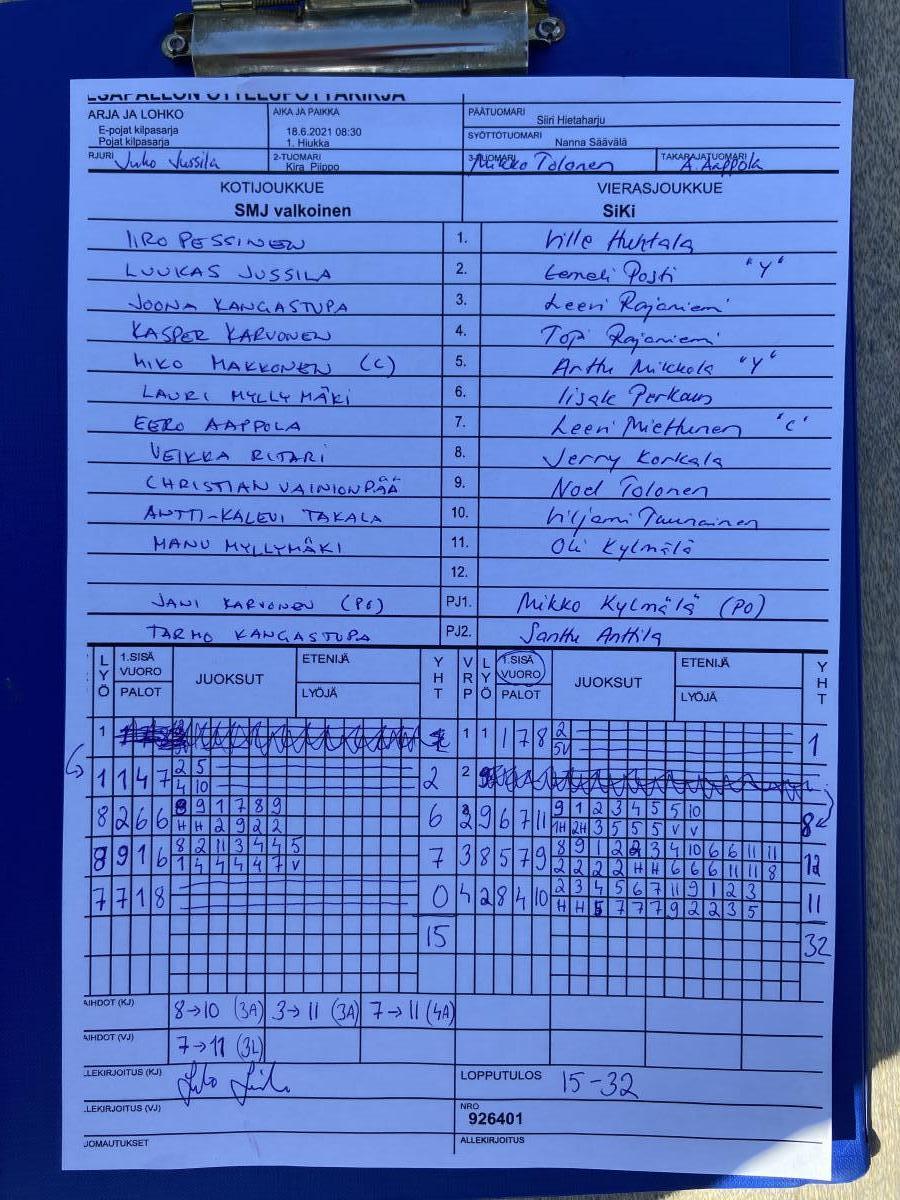 ESÄPALLON OTTELUPÖYTÄKIRJA
ARJA JA LOHKO AIKA JA PAIKKA PÄÄTUOMARI
E-pojat kilpasarja 18.6.2021 08:30 Siiri Hietaharju
Pojat kilpasarja 1. Hiukka SYÖTTÖTUOMARI Nanna Säävälä
RJURI Juho Jussila 2-TUOMARI Kira Piippo 3-TUOMARI Mikko Tolonen TAKARAJATUOMARI A. Aappola
KOTIJOUKKUE VIERASJOUKKUE
SMJ valkoinen SiKi
IIRO PESSINEN 1. Ville Huhtala
LUUKAS JUSSILA 2. Eemeli Posti "Y"
JOONA KANGASTUPA 3. Leevi Rajaniemi
KASPER KARVONEN 4. Topi Rajaniemi
NIKO MAKKONEN (C) 5. Arttu Mikkola "Y"
LAURI MYLLYMÄKI 6. Iisak
EERO AAPPOLA 7. Leevi Miettunen "C"
VEIKKA RITARI 8. Jerry Korkala
CHRISTIAN VAINIONPÄÄ 9. Noel Tolonen
ANTTI-KALEVI TAKALA 10. Viljami
MANU MYLLYMÄKI 11. Oli Kylmälä
12.
JANI KARVONEN (PO) PJ1. Mikko Kylmälä (PO)
TARMO KANGASTUPA PJ2. Santtu Anttila
LYÖ 1.SISÄ VUORO PALOT JUOKSUT ETENIJÄ LYÖJÄ YHT VRP LYÖ 1.SISÄ VUORO PALOT JUOKSUT ETENIJÄ LYÖJÄ YHT
1 1 1 1 7 8 2 1
5V
1 1 4 7 2 5 2 2
4 10
8 2 6 6 8 9 1 7 8 9 6 2 9 6 7 11 9 1 2 3 4 5 5 10 8
H H 2 9 2 2 1H 2H 3 5 5 5 V V
8 9 1 6 8 2 11 3 4 4 5 7 3 8 5 7 9 8 9 1 2 2 3 4 10 6 6 11 11 12
1 4 4 4 4 7 V 2 2 2 2 H H 6 6 6 11 11 8
7 7 1 8 0 4 2 8 4 10 2 3 4 5 6 7 11 9 1 2 3 11
H H 5 7 7 7 9 2 2 3 5
15 32
AIHDOT (KJ) 8→10 (3A) 3→11 (3A) 7→11 (4A)
AIHDOT (VJ) 7→11 (3L)
LEKIRJOITUS (KJ) LOPPUTULOS 15-32
LEKIRJOITUS (VJ) NRO 926401
JOMAUTUKSET ALLEKIRJOITUS